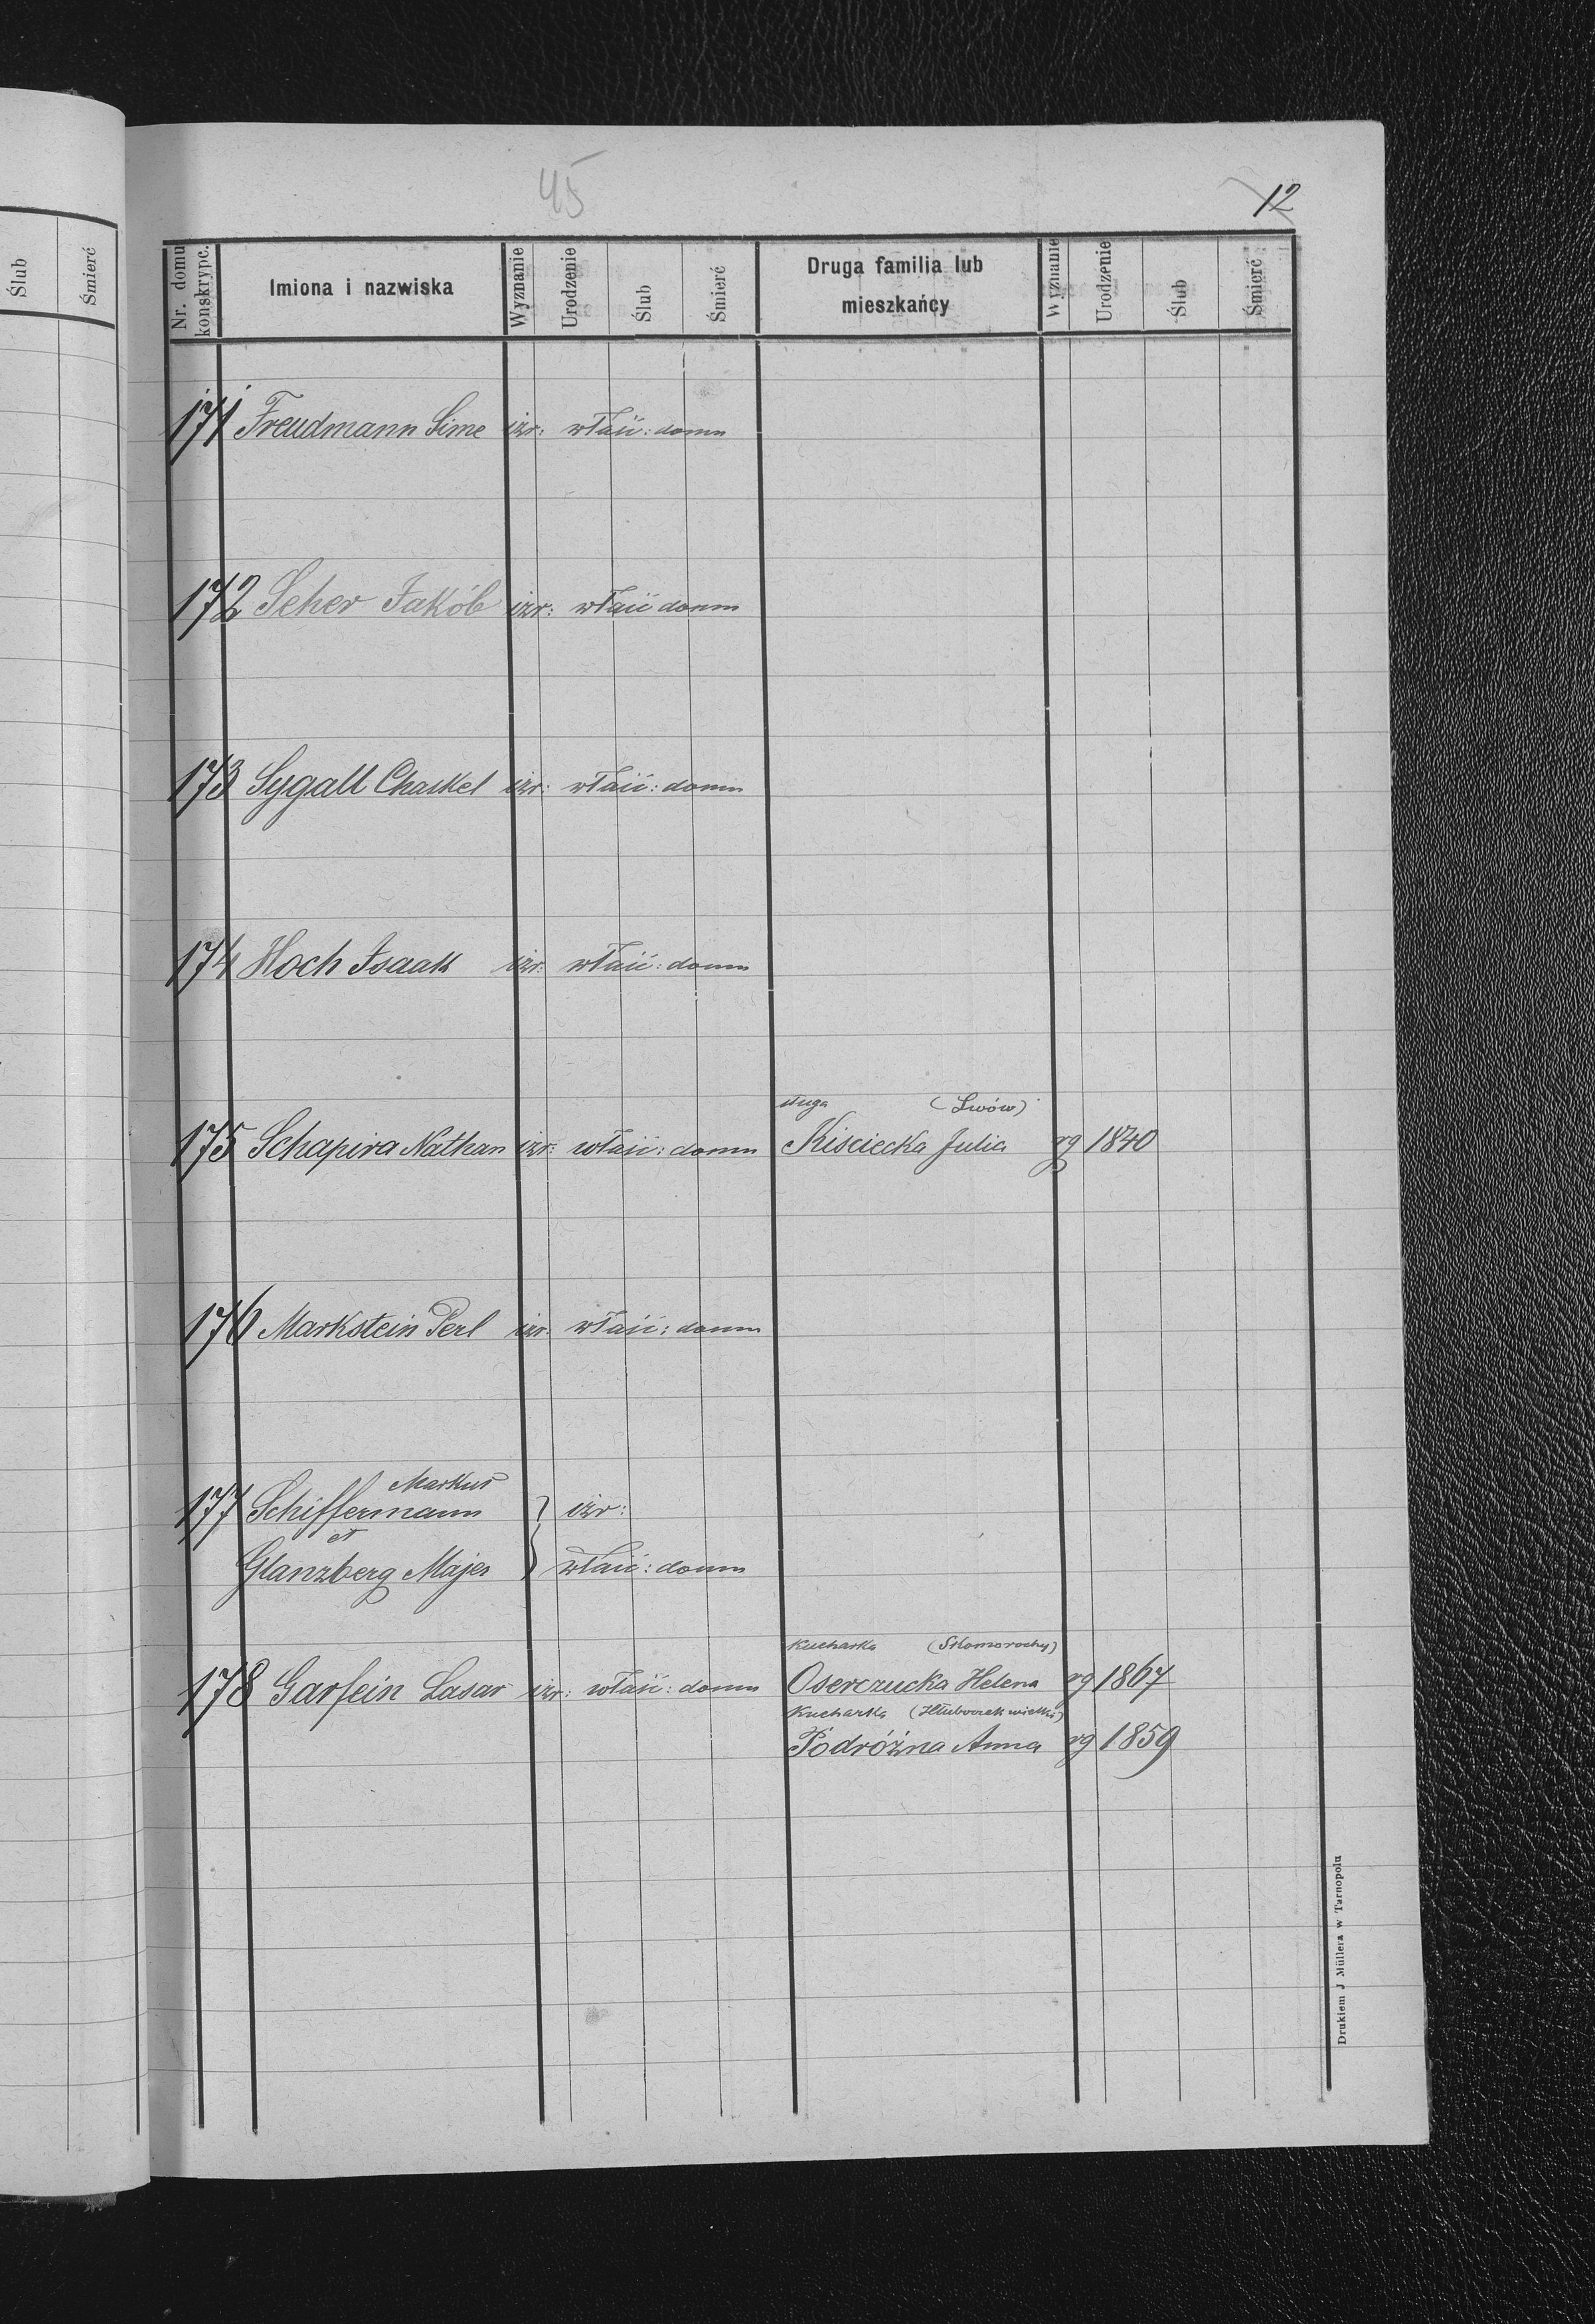 Ślub
Śmierć
45
12
Nr. domu konskrypc.
Imiona i nazwiska
Wyznanie
Urodzenie
Ślub
Śmierć
Druga familia lub
mieszkańcy
Wyznanie
Urodzenie
Ślub
Śmierć
171 Freudmann Sime izr: właść: domu
172 Scher Jakób izr: właść domu
173 Sygall Chaskel izr: właść: domu
174 Hoch Isaak izr: właść: domu
sługa (Lwów)
175 Schapira Nathan izr: właść: domu Kisciecka Julia rg 1840
176 Markstein Perl izr: właść: domu
Markus
177 Schiffermann } izr:
et
Glanzberg Majer } właść: domu
Kucharka (Skomorochy)
178 Garfein Lasar izr: właść: domu Oserczucka Helena rg 1867
Kucharka (Hłuboczek wielki)
Podróżna Anna rg 1859
Drukiem J Müllera w Tarnopolu